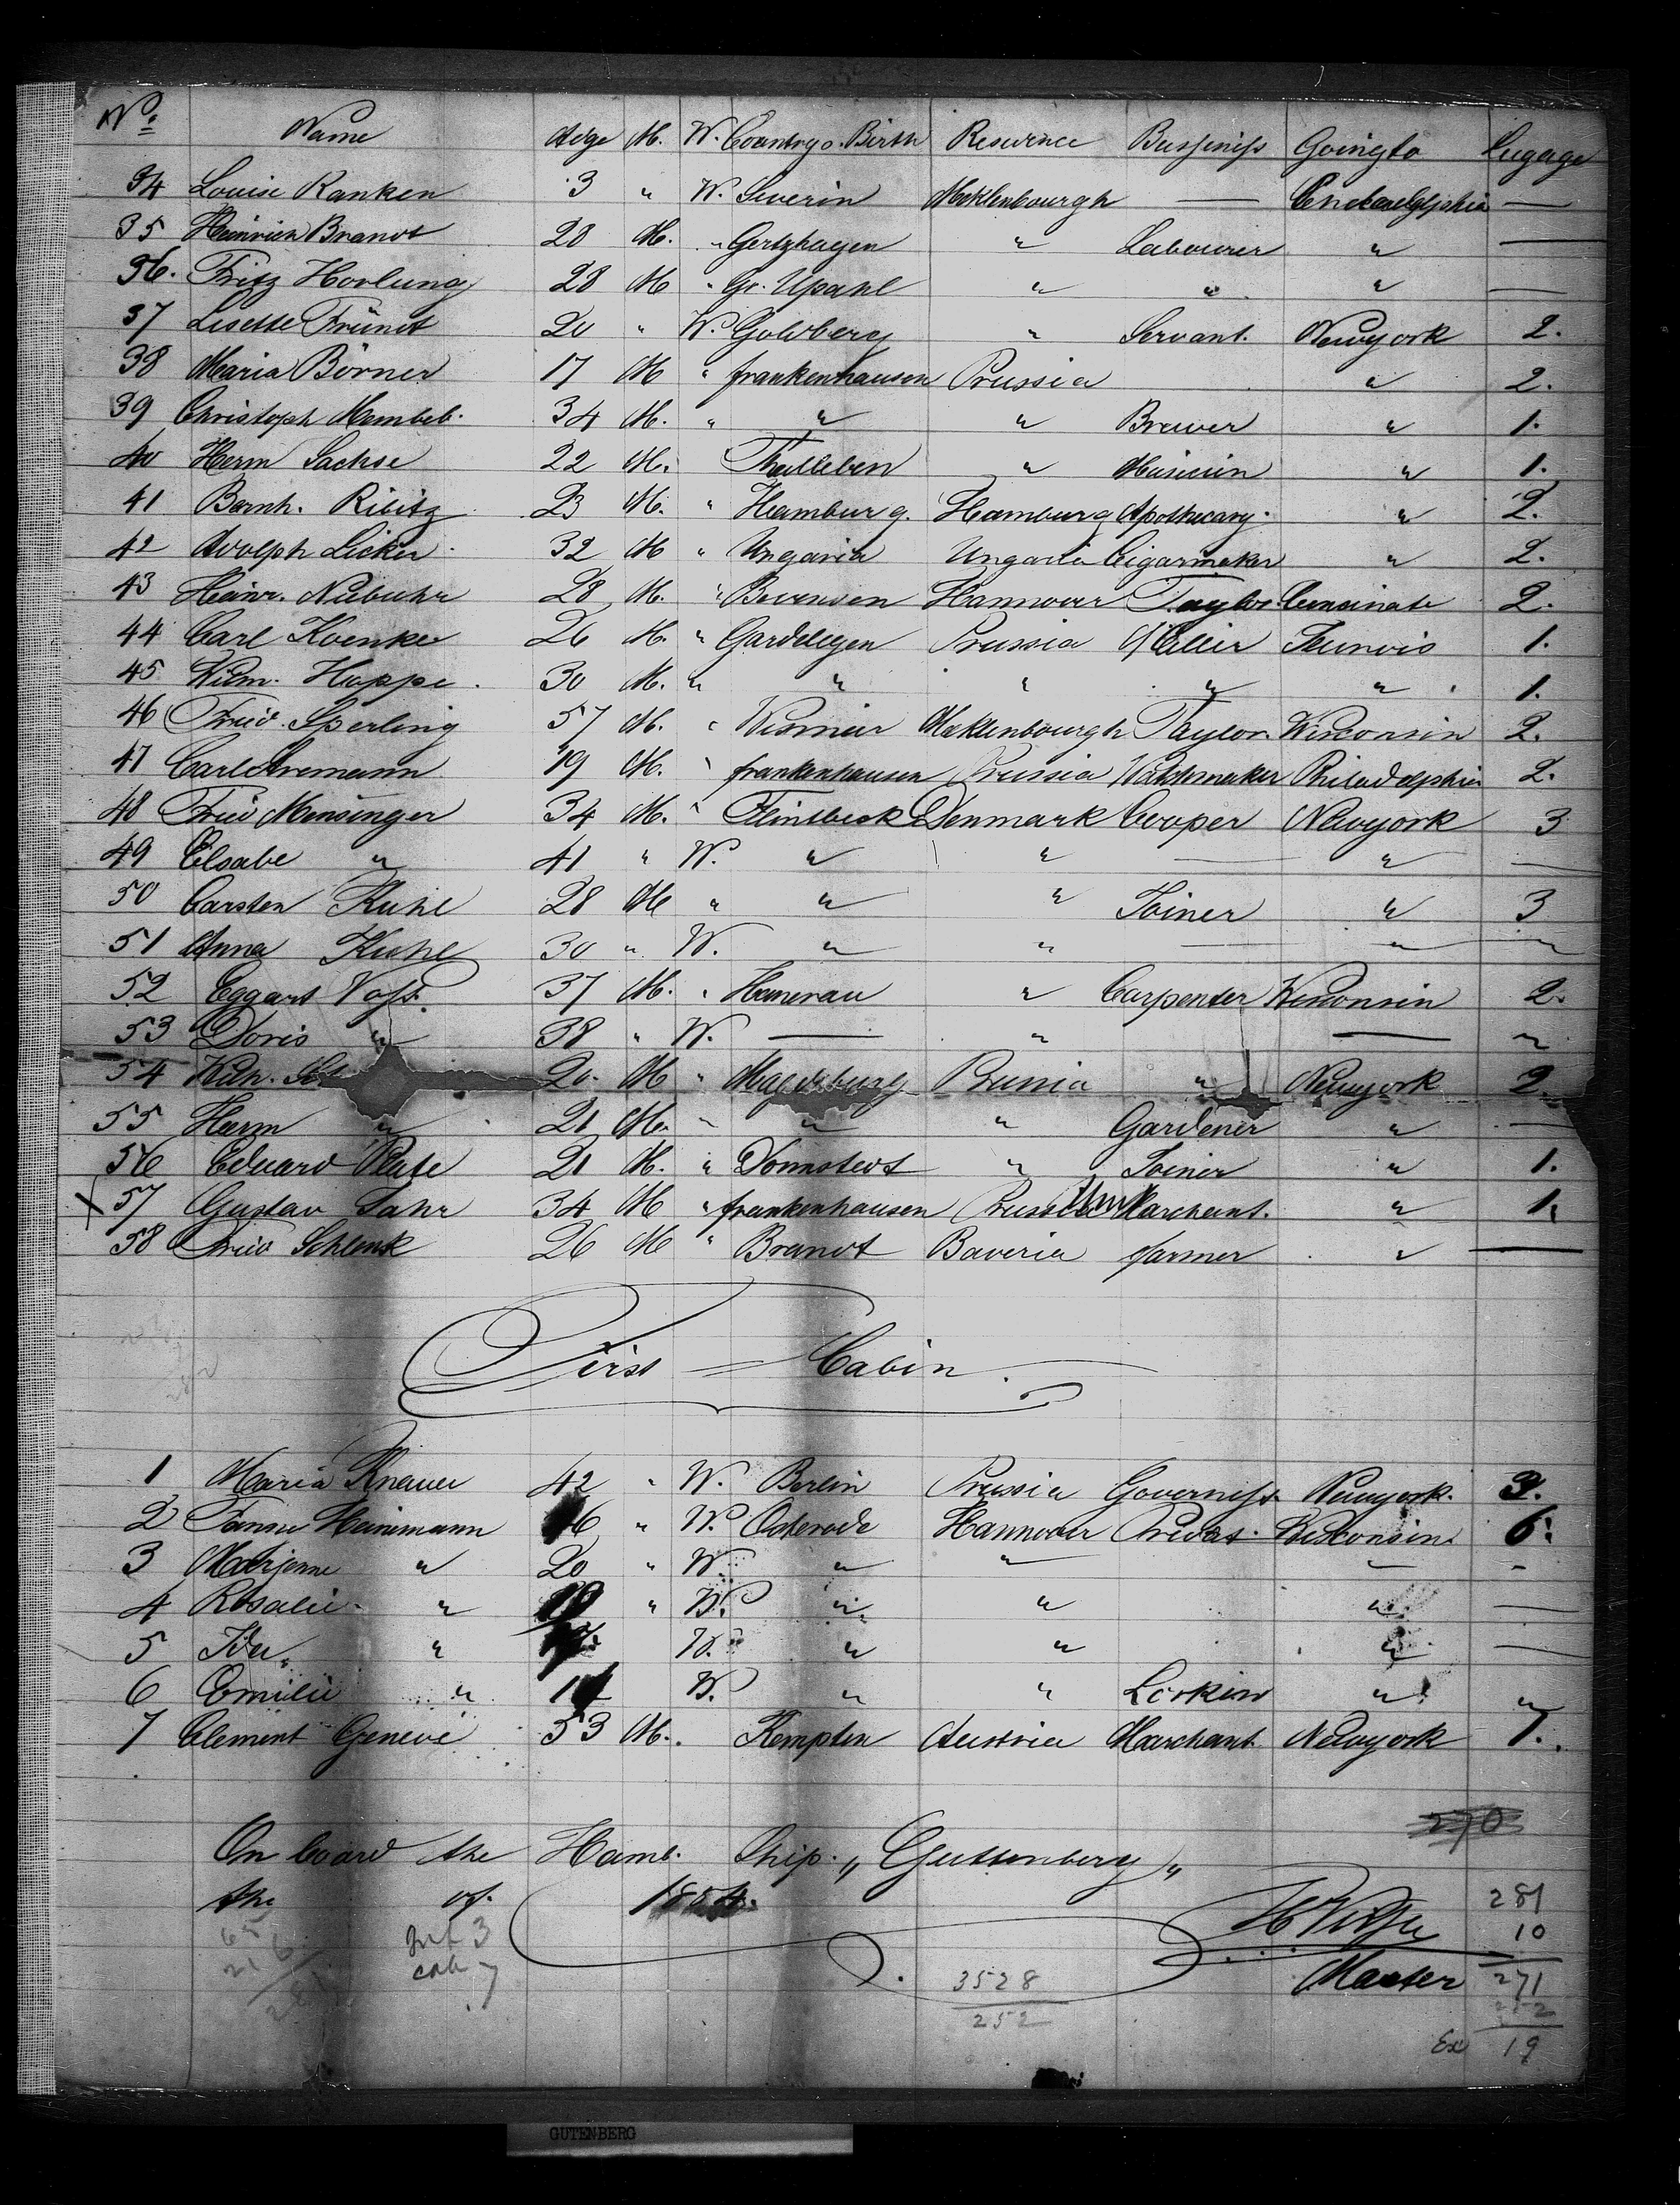 No. Name Aege M. W. Country o. Birth Resurence Bussiniss Goingto Lugage
34 Louise Ranken 3 " W. Severin Meklenbourgh — —
35 Heinrich Brandt 28 M. " Gertzhagen " Labourer " —
36. Fritz Horlung 28 M " Gr. Upahl " " " —
37 Lisette Fründt 20 " W. Goldberg " Servant. Newyork 2.
38 Maria Börner 17 M " frankenhausen Prussia " 2.
39 Christoph 34 M. " " " Brewer " 1.
40 Herm Sachse 22 M. Thalleben " " 1.
41 Barnh. Ribitz 23 M. " Hamburg. Hamburg Apothecary. " 2.
42 Adolph Licker 32 M " Ungaria Ungaria Cigarmaker " 2.
43 Heinr. Niebuhr 28 M. " Bevensen Hannover Taylor Censinate 2.
44 Carl Koenke 26 M. " Gardelegen Prussia 1.
45 Wilm. Hoppe 30 M. " " " " " 1.
46 Fried. Sperling 57 M. " Wismar Meklenbourgh Taylor Wisconsin 2.
47 Carl 19 M. " frankenhausen Prussia Watchmaker Philadelphia 2.
48 Fried Mensinger 34 M. " Flintbeck Denmark Cooper Newyork 3
49 Elsabe " 41 " W. " " — " —
50 Carsten Kuhl 28 M " " " Joiner " 3
51 Anna Kuhl 30 " W. " " — " "
52 Eggert Voss. 37 M. " Hanerau " Carpenter Wisconsin 2.
53 Doris " 38 " W. — " — "
54 20. M " Magdeburg Prussia " Newyork 2.
55 Herm " 21 M. " " " Gardener " —
56 Eduard Plate 21 M. " Donnstedt " Joiner " 1.
X 57 Gustav Sahr 34 M " frankenhausen Prussia Marchant. " 1.
58 Fried Schlenk 26 M " Brandt Baveria farmer " —
First = Cabin.
1 Maria Knauer 42 " W. Berlin Prussia Governess. Newyork.
2 Heinemann " W. Osterode Hannover Privat. Wisconsin. 6.
3 " 20 " W. " " " -
4 Rosalie " " W. " " " —
5 Ida " W. " " " —
6 Emilie " W. " " " "
7 Clement Genevé 53 M. Kempten Austria Marchant. Newyork 7.
270
On board the Hamb. Ship. „Guttenberg„
the of 1854.
281
10
Master 271
252
Ex 19
65
216
281
Inf 3
cab 7
3528
252
GUTENBERG